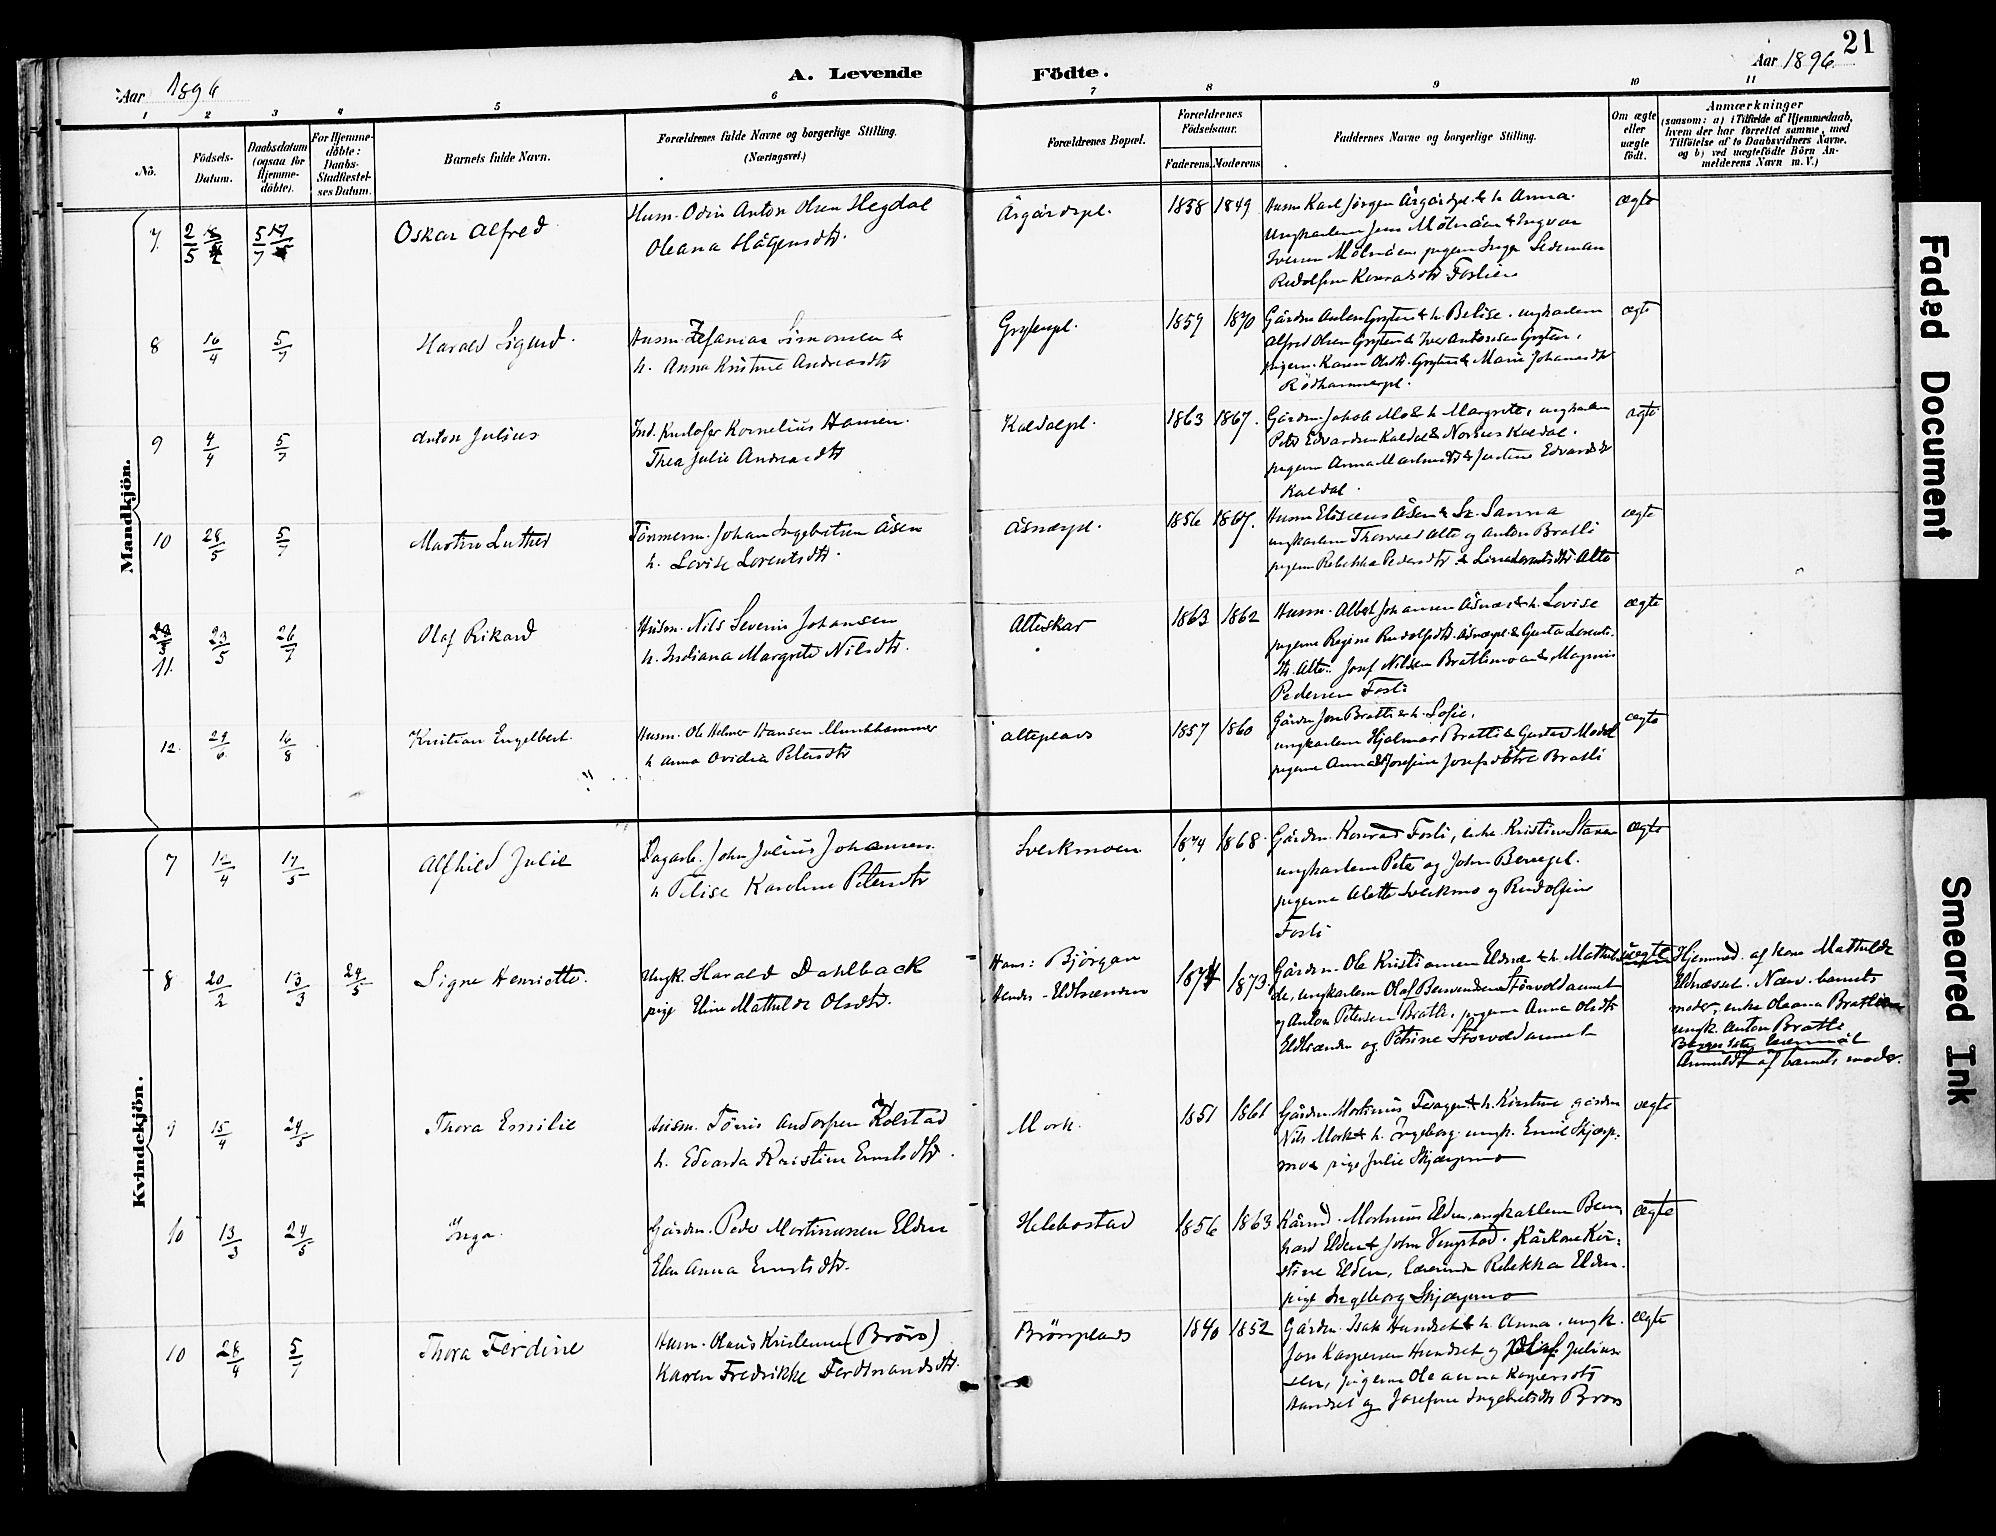 21
Aar 1896 A. Levende Födte. Aar 1896
1 2 3 4 5 6 7 8 9 10 11
No.
Födsels-Datum.
Daabsdatum (ogsaa for Hjemme-döbte).
For Hjemme-döbte: Daabs-Stadfæstel-ses Datum.
Barnets fulde Navn.
Forældrenes fulde Navne og borgerlige Stilling. (Næringsvei.)
Forældrenes Bopæl.
Forældrenes Födselsaar.
Faderens. Moderens.
Faddernes Navne og borgerlige Stilling.
Om ægte eller uægte födt.
Anmærkninger
(saasom: a) i Tilfælde af Hjemmedaab, hvem der har forrettet samme, med Tilföielse af to Daabsvidners Navne, og b) ved uægtefödte Börn An-melderens Navn m. V.)
Mandkjön.
7 2/5 5/7 Oskar Alfred
Husm. Odin Anton Olsen Hegdal
Oleana Hågensdtr.
Årgårdspl. 1858 1849
Husm Karl Jørgen Årgårdspl. & h. Anna.
Ungkarlem Jens Mölnåen & Ingvar
Iversen Mölnåen pigem Inga Sedeman
Rudolfine Konradsdtr Foslien
ægte
8 16/4 5/7 Harald Sigurd.
Husm. Zefanias Simonsen &
h. Anna Kristine Andreasdtr
Grytenpl. 1859 1870
Gårdm Anton Gryten & h. Belise. ungkarlem
Alfred Olsen Gryten & Iver Antonsen Gryten,
pigem. Karen Olsdtr. Gryten & Marie Johansdtr
Rödhammerpl.
ægte
9 4/4 5/7 Anton Julius
Ind. Kristofer Kornelius Hansen.
Thea Julie Andreasdtr
Kaldalpl. 1863 1867.
Gårdm. Jakob Mo & h. Margrete, ungkarlem
Peter Edvardsen Kaldal & Kaldal.
pigem Anna & Justine Edvardsdtr
Kaldal.
ægte
10 28/5 5/7 Martin Luther
Tömmerm. Johan Ingebrigtsen Åsen
h. Lovise Lorentsdtr.
Åsnæspl. 1856 1867.
Husm Eliseus Åsen & h. Sanna
ungkarlem Thorvald Alte og Anton Bratli
pigem Rebekka Pedersdtr & Lina Lorentsdtr Alte
ægte
11. 23/5 26/7 Olaf Rikard
Husm. Nils Severin Johansen
h. Indiana Margrete Nilsdtr.
Alteskar 1863 1862
Husm. Albert Johansen Åsnæs & h. Lovise
pigerne Regine Rudolfsdtr. Åsnæspl. & Gusta Lorents-
dtr. Alte. Josef Nilsen Bratlimoan & Magnus
Pedersen Fosli
ægte
12. 29/6 16/8 Kristian Engelbert
Husm. Ole Helmer Hansen
h Anna Ovidia Petersdtr
Alteplads 1857 1860
Gårdm Jon Bratli & h. Sofie.
ungkarlem Hjalmar Bratli & Gustav
pigerne Anna & Josefine Josefsdötre Bratli
ægte
Kvindekjön.
7 12/4 17/5 Alfhild Julie
Dagarb. John Julius Johansen.
h Pelise Karoline Petersdtr
Sverkmoen 1874 1868
Gårdm. Konrad Fosli, enke Kristine
ungkarlem Peter og John
pigerne Alette Sverkmo og Rudolfine
Fosli
ægte
8 20/2 13/3 24/5 Signe Henriette.
Ungk. Harald Dahlback
pige Eline Mathilde Olsdtr.
Hans: Björgan
Hendes - 1874 1873
Gårdm. Ole Kristiansen Eldnæs & h. Mathil-
de, ungkarlem Olaf Störvoldannet
og Anton Petersen Bratli, pigerne Anna Olsdtr
og Petrine Störvoldannet
uægte
Hjemmed. af kone Mathilde
Eldnæsset. Nærv. barnets
moder, enke Oleana
ungk. Anton Bratli
Anmeldt af barnets moder.
9 15/4 24/5 Thora Emilie
Husm. Tönnes Andorsen Kolstad
h. Edvarda Kristine Ernstsdtr.
Mork. 1851 1861
Gårdm. Mortinius & h. Kirstine, gårdm
Nils Mork & h. Ingeborg. ungk. Emil Skjærp-
moe pige Julie Skjærpmo
ægte
10 13/3 24/5 Inga.
Gårdm. Peder Mortinussen Elden
Elen Anna Ernstsdtr.
Helebostad 1856 1863
Kårmd. Mortinus Elden, ungkarlem Bern-
hard Elden & John Vengstad. Kårkone Kir-
stine Elden, lærerinde Rebekka Elden.
pige Ingeborg Skjærpmo
ægte
10 28/4 5/7 Thora Ferdine
Husm. Olaus Kristensen (Brörs)
Karen Fredrikke Ferdinandsdtr.
Brörsplads 1840 1852
Gårdm. Isak Hundset & h. Anna. ungk.
Jon Kaspersen Hundset og Olaf Julius-
sen, pigerne Oleanna Kaspersdtr
Hundset og Josefine Ingebrigtsdtr Brörs
ægte
Faded Document
Smeared Ink